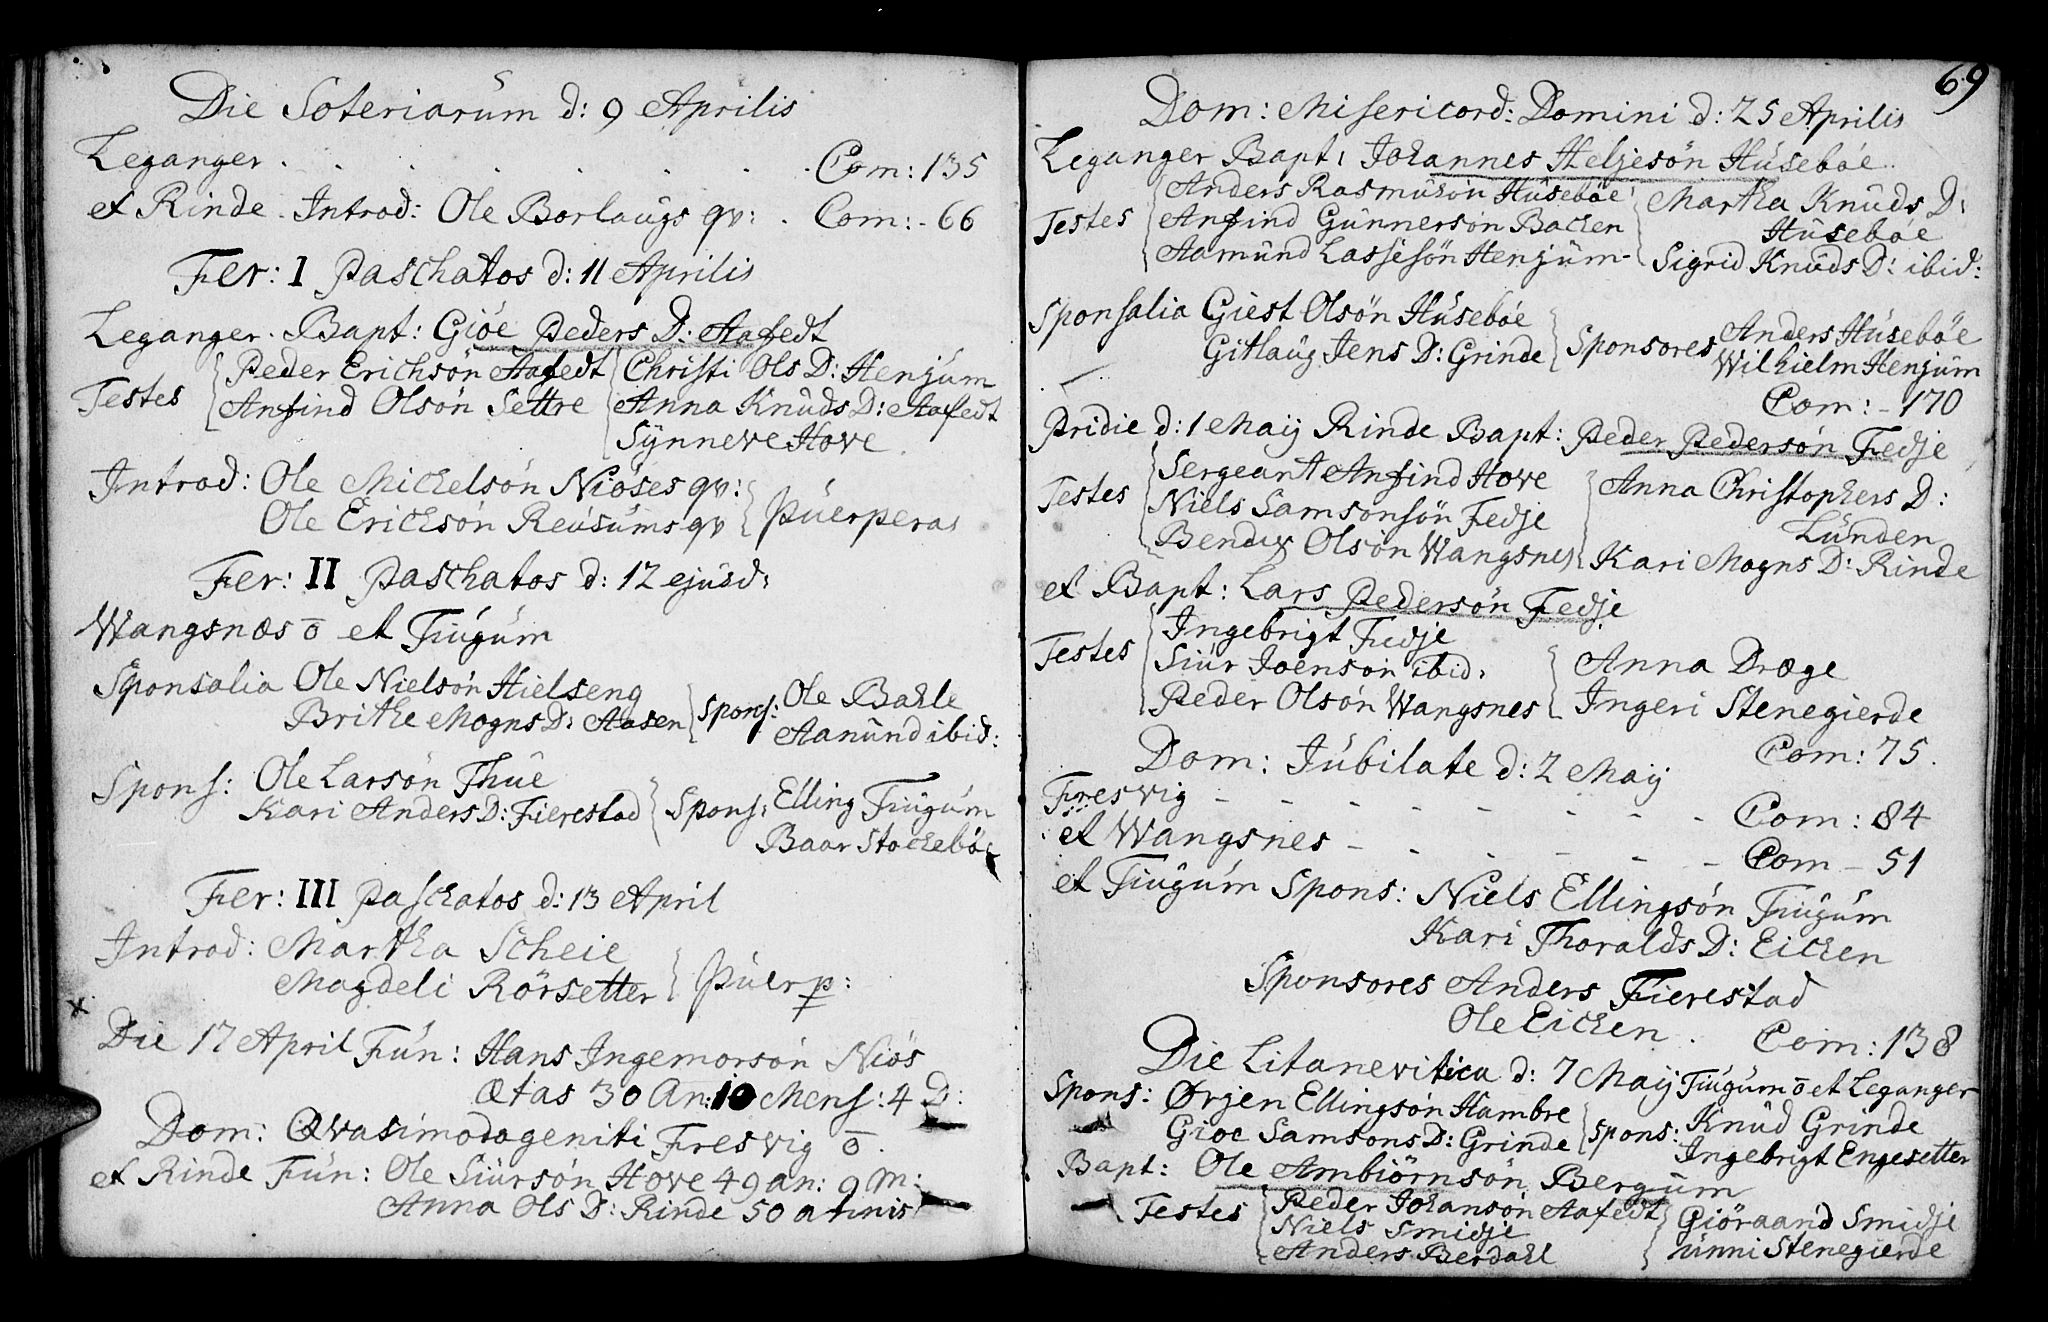 Die Soteriarum d: 9 Aprilis
Leganger . . . . . . . Com: 135
et Rinde . Introd: Ole Borlaugs qv: . Com: - 66
Fer: I Paschatos d: 11 Aprilis
Leganger . Bapt: Giöe Peders D: Aafedt
Testes
Peder Erichsön Aafedt
Anfind Olsön Settre
Christi Ols D: Henjum
Anna Knuds D: Aafedt
Sÿnneve Hove
Introd: Ole Michelsön Niöses qv:
Ole Ericksön Reusums qv
Puerperas
Fer: II Paschatos d: 12 ejusd:
Wangsnæs ō et Fiugum
Sponsalia Ole Nielsön Hielseng
Brithe Mogns D: Aasen
Spons: Ole Bakle
Aanund ibid:
Spons: Ole Larsön Thue
Kari Anders D: Fierestad
Spons: Elling Fiugum
Baar Stockeböe
Fer: III Paschatos d: 13 April
Introd: Martha Scheie
Magdeli Rörsetter
Puerp:
Die 17 April Fun: Hans Ingemorsön Niös
Ætas 30 An: 10 Mens: 4 D:
Dom: Qvasimodogeniti Fresvig ō.
et Rinde Fun: Ole Siursön Hove 49 an: 9 M:
Anna Ols D: Rinde 50 annis
69
Dom: Misericord: Domini d: 25 Aprilis
Leganger Bapt: Johannes Heljesön Huseböe
Testes
Anders Rasmusön Huseböe
Anfind Gunnersön Backen
Aamund Lassesön Henjum
Martha Knuds D:
Huseböe
Sigrid Knuds D: ibid:
Sponsalia Giest Olsön Huseböe
Gitlaug Jens D: Grinde
Sponsores Anders Huseböe
Wilhielm Henjum
Com: - 170
Pridie d: 1 Maij Rinde Bapt: Peder Pedersön Fedje
Testes
Sergeant Anfind Hove
Niels Samsonsön Fedje
Bendix Olsön Wangsnes
Anna Christophers D:
Lunden
Kari Mogns D: Rinde
et Bapt: Lars Pedersön Fedje
Testes
Ingebrigt Fedje
Siur Joensön ibid:
Peder Olsön Wangsnes
Anna Dræge
Ingeri Stenegierde
Com: 75.
Dom: Jubilate d: 2 Maij
Fresvig - - - - - - - Com: 84
et Wangsnes - - - - - - Com - 51
et Fiugum Spons: Niels Ellingsön Fiugum
Kari Thoralds D: Eichen
Sponsores Anders Fierestad
Ole Eichen . Com: 138
Die Litanevitica d: 7 Maij Fiugum ō et Leganger
Spons: Ørjen Ellingsön Hambre
Gioe Samsons D: Grinde
Spons: Knud Grinde
Ingebrigt Engesetter
Bapt: Ole Ambiörnsön Bergum
Testes
Peder Johansön Aafedt
Niels Smidje
Anders Berdahl
Giöraand Smidje
unni Stenegierde